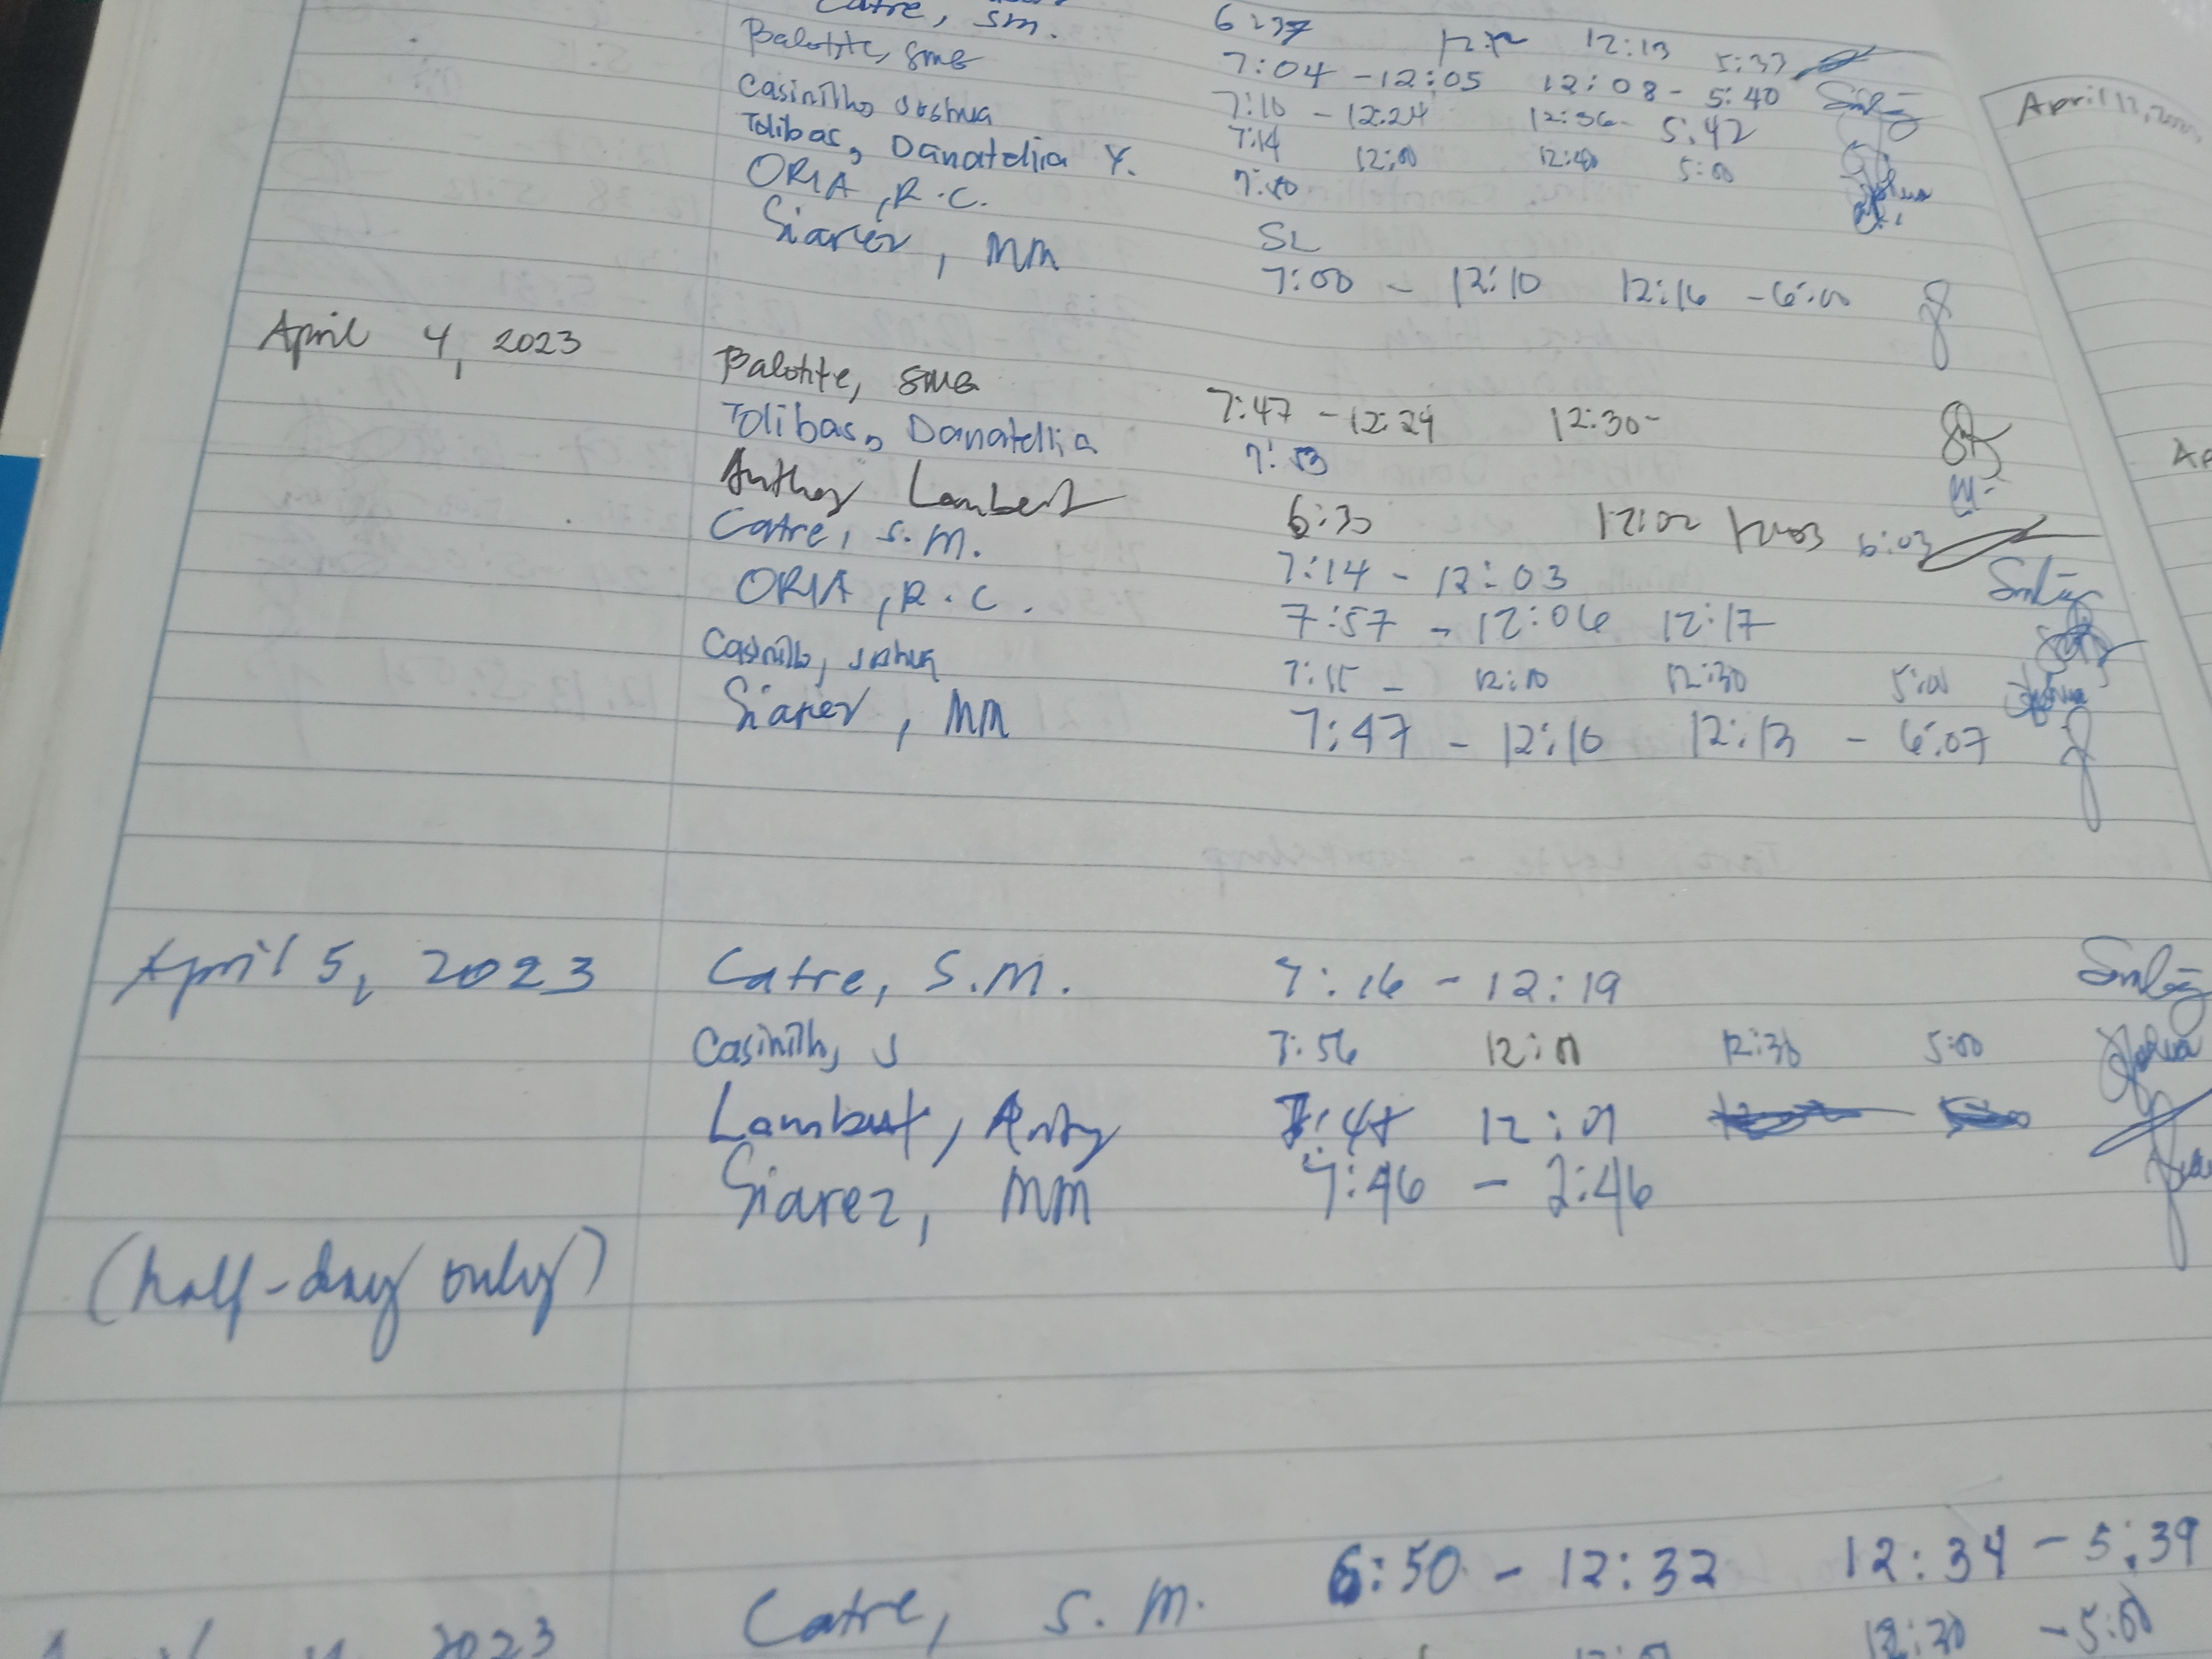 Catre, sm. 6:37 12:12 12:13 5:33
Balotite, SMB 7:04 - 12:05 12:08 - 5:40
Casinillo, Joshua 7:10 - 12:24 12:36 - 5:42
Tolibas, Danatellia Y. 7:14 12:00 12:40 5:00
ORIA, R.C. 7:40
Siarez, MM SL
7:00 - 12:10 12:16 - 6:00
April 4, 2023 Balotite, SMB 7:47 - 12:24 12:30-
Tolibas, Danatellia 7:53
Anthony Lambert 6:30 12:02 12:03 6:03
Catre, S.M. 7:14 - 12:03
ORIA, R.C. 7:57 - 12:06 12:17
Casinillo, Joshua 7:15 - 12:10 12:30 5:00
Siarez, MM 7:47 - 12:10 12:13 - 6:07
April 5, 2023 Catre, S.M. 7:16 - 12:19
Casinillo, J 7:56 12:01 12:30 5:00
Lambert, 12:01
Siarez, MM 7:46 - 2:46
(half-day only)
2023 Catre, S.M. 6:50 - 12:32 12:34 - 5:39
12:30 - 5:00
April 12,